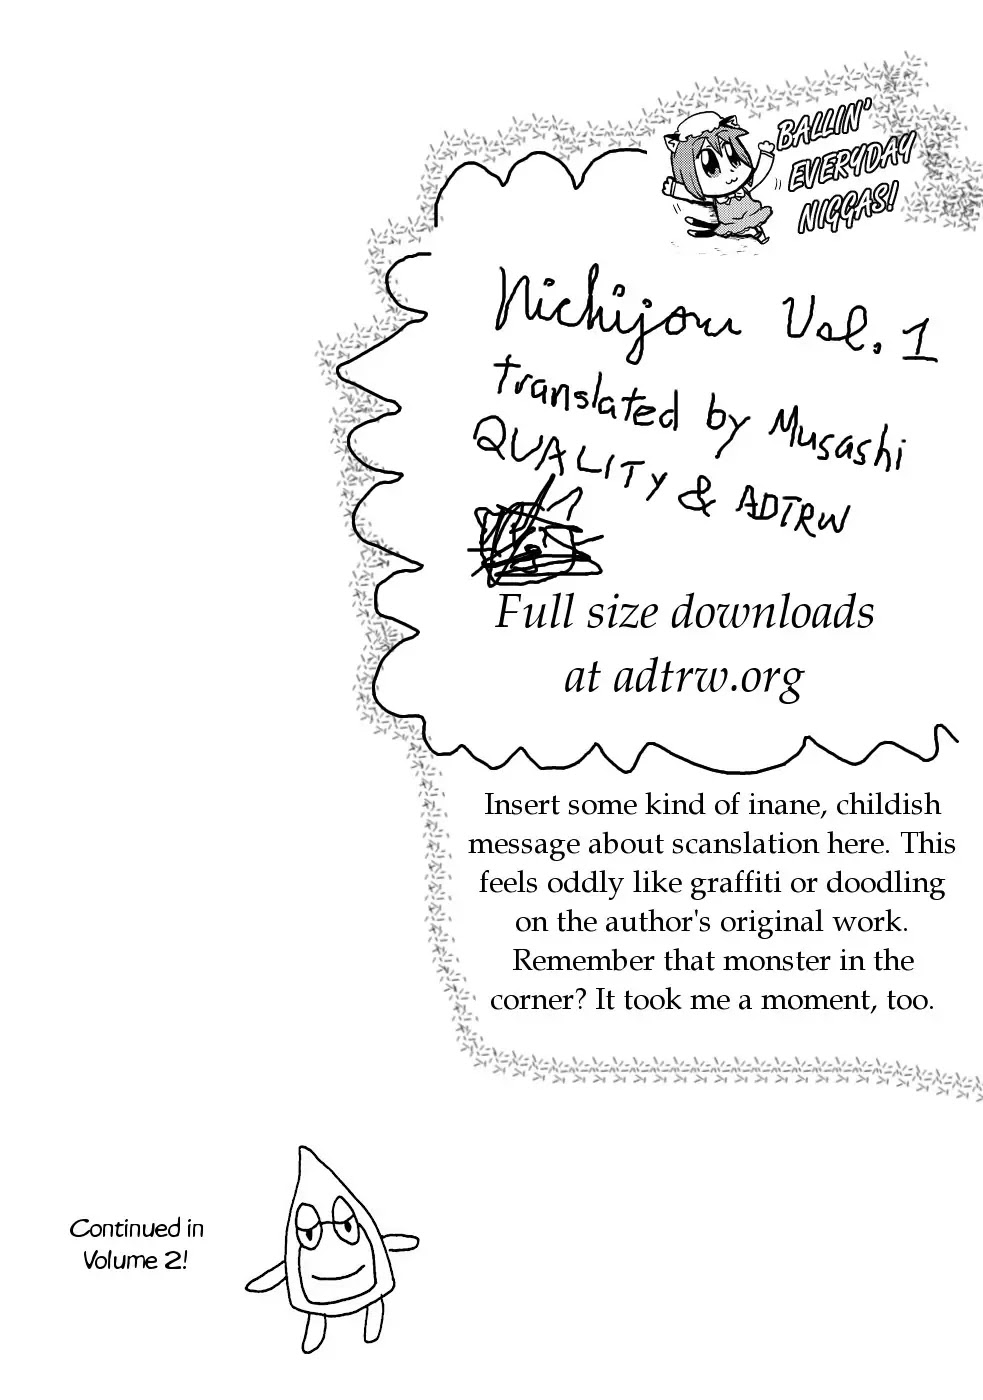 BALLIN'
EVERYDAY
NIGGAS!
Nichijou Vol. 1
translated by Musashi
QUALITY & ADTRW
Full size downloads
at adtrw.org
Insert some kind of inane, childish
message about scanslation here. This
feels oddly like graffiti or doodling
on the author's original work.
Remember that monster in the
corner? It took me a moment, too.
Continued in
Volume 2!